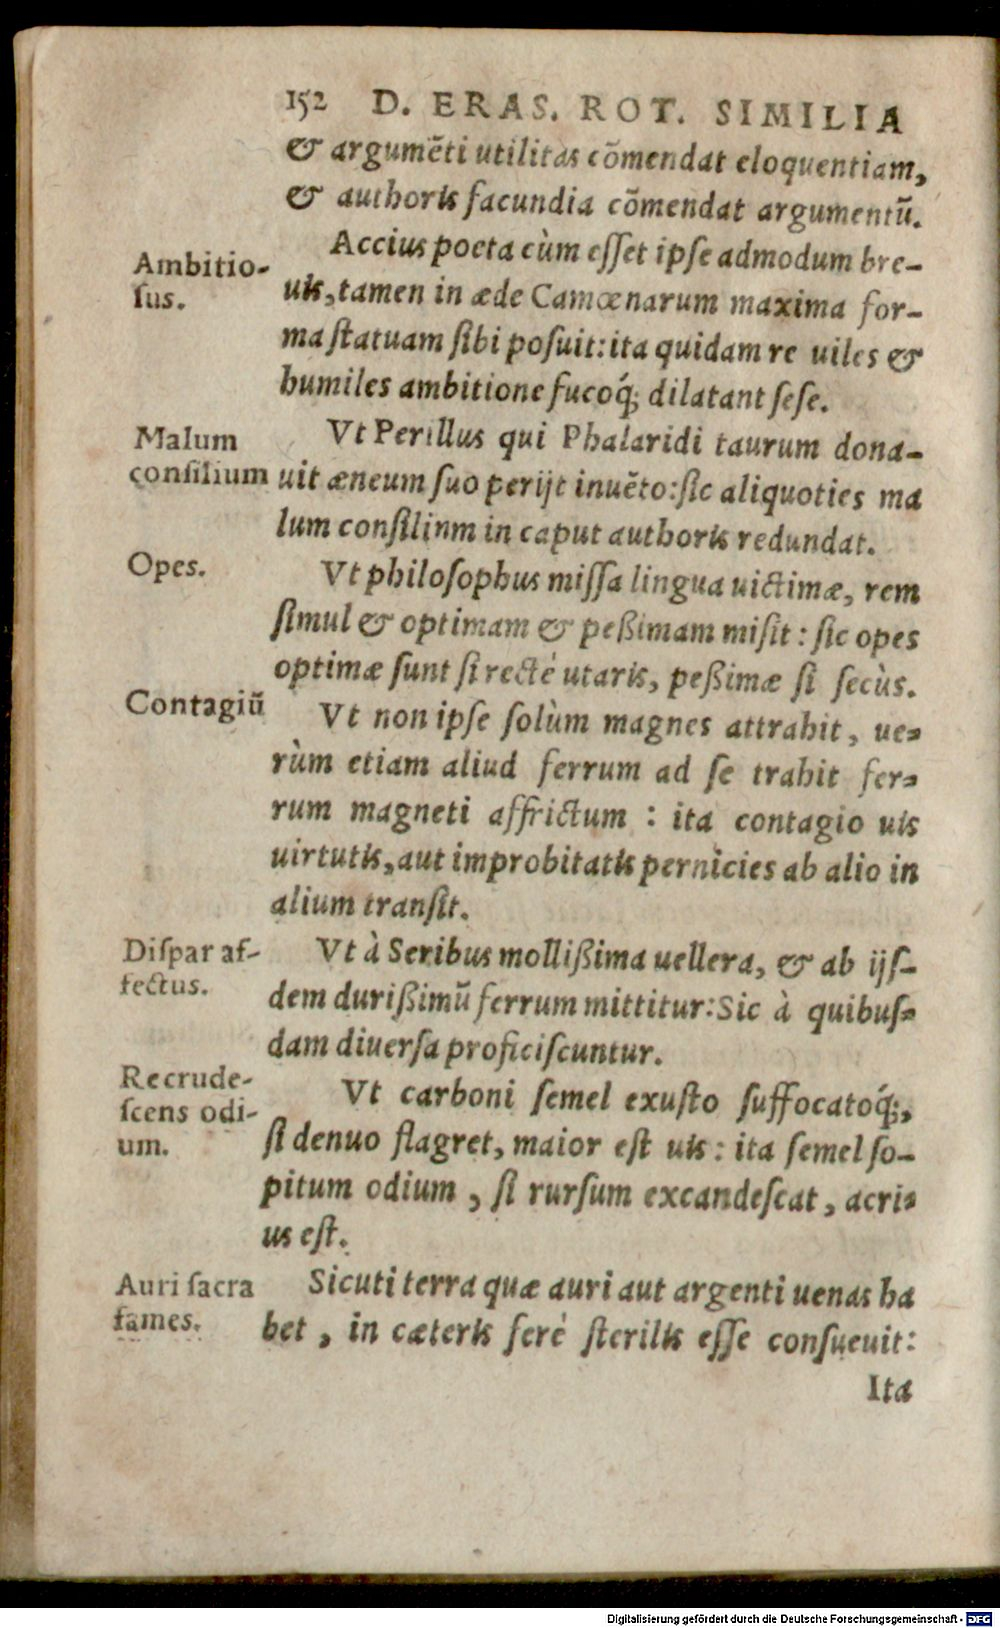 152 D. ERAS. ROT. SIMILIA
& argumẽti utilitas cõmendat eloquentiam,
& authoris facundia cõmendat argumentũ.
Ambitio-
ſus.
Accius poeta cùm eſſet ipſe admodum bre-
uis, tamen in æde Camœnarum maxima for-
ma ſtatuam ſibi poſuit: ita quidam re uiles &
humiles ambitione fucoq́; dilatant ſeſe.
Malum
conſilium
Vt Perillus qui Phalaridi taurum dona-
uit æneum ſuo perijt inuẽto: ſic aliquoties ma
lum conſilinm in caput authoris redundat.
Opes.
Vt philoſophus miſſa lingua uictimæ, rem
ſimul & optimam & peßimam miſit: ſic opes
optimæ ſunt ſi rectè utaris, peßimæ ſi ſecùs.
Contagiũ
Vt non ipſe ſolùm magnes attrahit, ue-
rùm etiam aliud ferrum ad ſe trahit fer-
rum magneti affrictum: ita contagio uis
uirtutis, aut improbitatis pernicies ab alio in
alium tranſit.
Diſpar af-
fectus.
Vt à Seribus mollißima uellera, & ab ijſ-
dem durißimũ ferrum mittitur: Sic à quibuſ-
dam diuerſa proficiſcuntur.
Recrude-
ſcens odi-
um.
Vt carboni ſemel exuſto ſuffocatoq́;,
ſi denuo flagret, maior eſt uis: ita ſemel ſo-
pitum odium, ſi rurſum excandeſcat, acri-
us eſt.
Auri ſacra
fames.
Sicuti terra quæ auri aut argenti uenas ha
bet, in cæteris ferè ſterilis eſſe conſueuit:
Ita
Digitalisierung gefördert durch die Deutsche Forschungsgemeinschaft - DFG